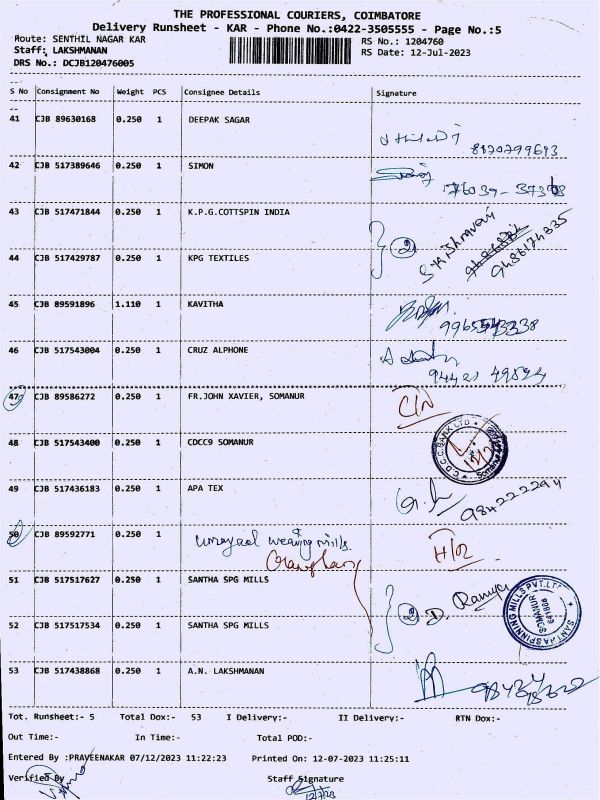 THE PROFESSIONAL COURIERS, COIMBATORE
Delivery Runsheet - KAR - Phone No.:0422-3505555 - Page No.:5
Route: SENTHIL NAGAR KAR RS No.: 1204760
Staff: LAKSHMANAN RS Date: 12-Jul-2023
DRS No.: DCJB120476005
S No Consignment No Weight PCS Consignee Details Signature
41 CJB 89630168 0.250 1 DEEPAK SAGAR
8870799693
42 CJB 517389646 0.250 1 SIMON
43 CJB 517471844 0.250 1 K.P.G.COTTSPIN INDIA
2
44 CJB 517429787 0.250 1 KPG TEXTILES
9486174335
45 CJB 89591896 1.110 1 KAVITHA
46 CJB 517543004 0.250 1 CRUZ ALPHONE
47 CJB 89586272 0.250 1 FR.JOHN XAVIER, SOMANUR
48 CJB 517543400 0.250 1 CDCC9 SOMANUR
C.D.C.C. BANK LTD
49 CJB 517436183 0.250 1 APA TEX
50 CJB 89592771 0.250 1 umayaal weaving mills
51 CJB 517517627 0.250 1 SANTHA SPG MILLS
2 D. Ramya
SANTHA SPINNING MILLS PVT.LTD
SOMANUR
52 CJB 517517534 0.250 1 SANTHA SPG MILLS
53 CJB 517438868 0.250 1 A.N. LAKSHMANAN
Tot. Runsheet:- 5 Total Dox:- 53 I Delivery:- II Delivery:- RTN Dox:-
Out Time:- In Time:- Total POD:-
Entered By :PRAVEENAKAR 07/12/2023 11:22:23 Printed On: 12-07-2023 11:25:11
Verified By Staff Signature
12/7/23